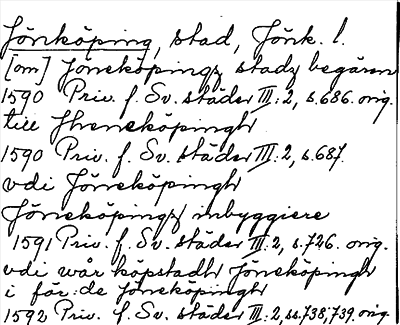 Jönköping, stad, Jönk. l.
[om] Jöneköpingz stadz begären
1590 Priv. f. Sv. städer III:2, s.686. orig.
till Jheneköpingh
1590 Priv. f. Sv. städer III:2, s.687.
vdi Jöneköpingh
Jöneköpingz inbyggiere
1591 Priv. f. Sv. städer III:2, s.726. orig.
vdi wår köpstadh Jöneköpingh
i för:de Jöneköpingh
1592 Priv. f. Sv. städer III:2, ss.738,739. orig.